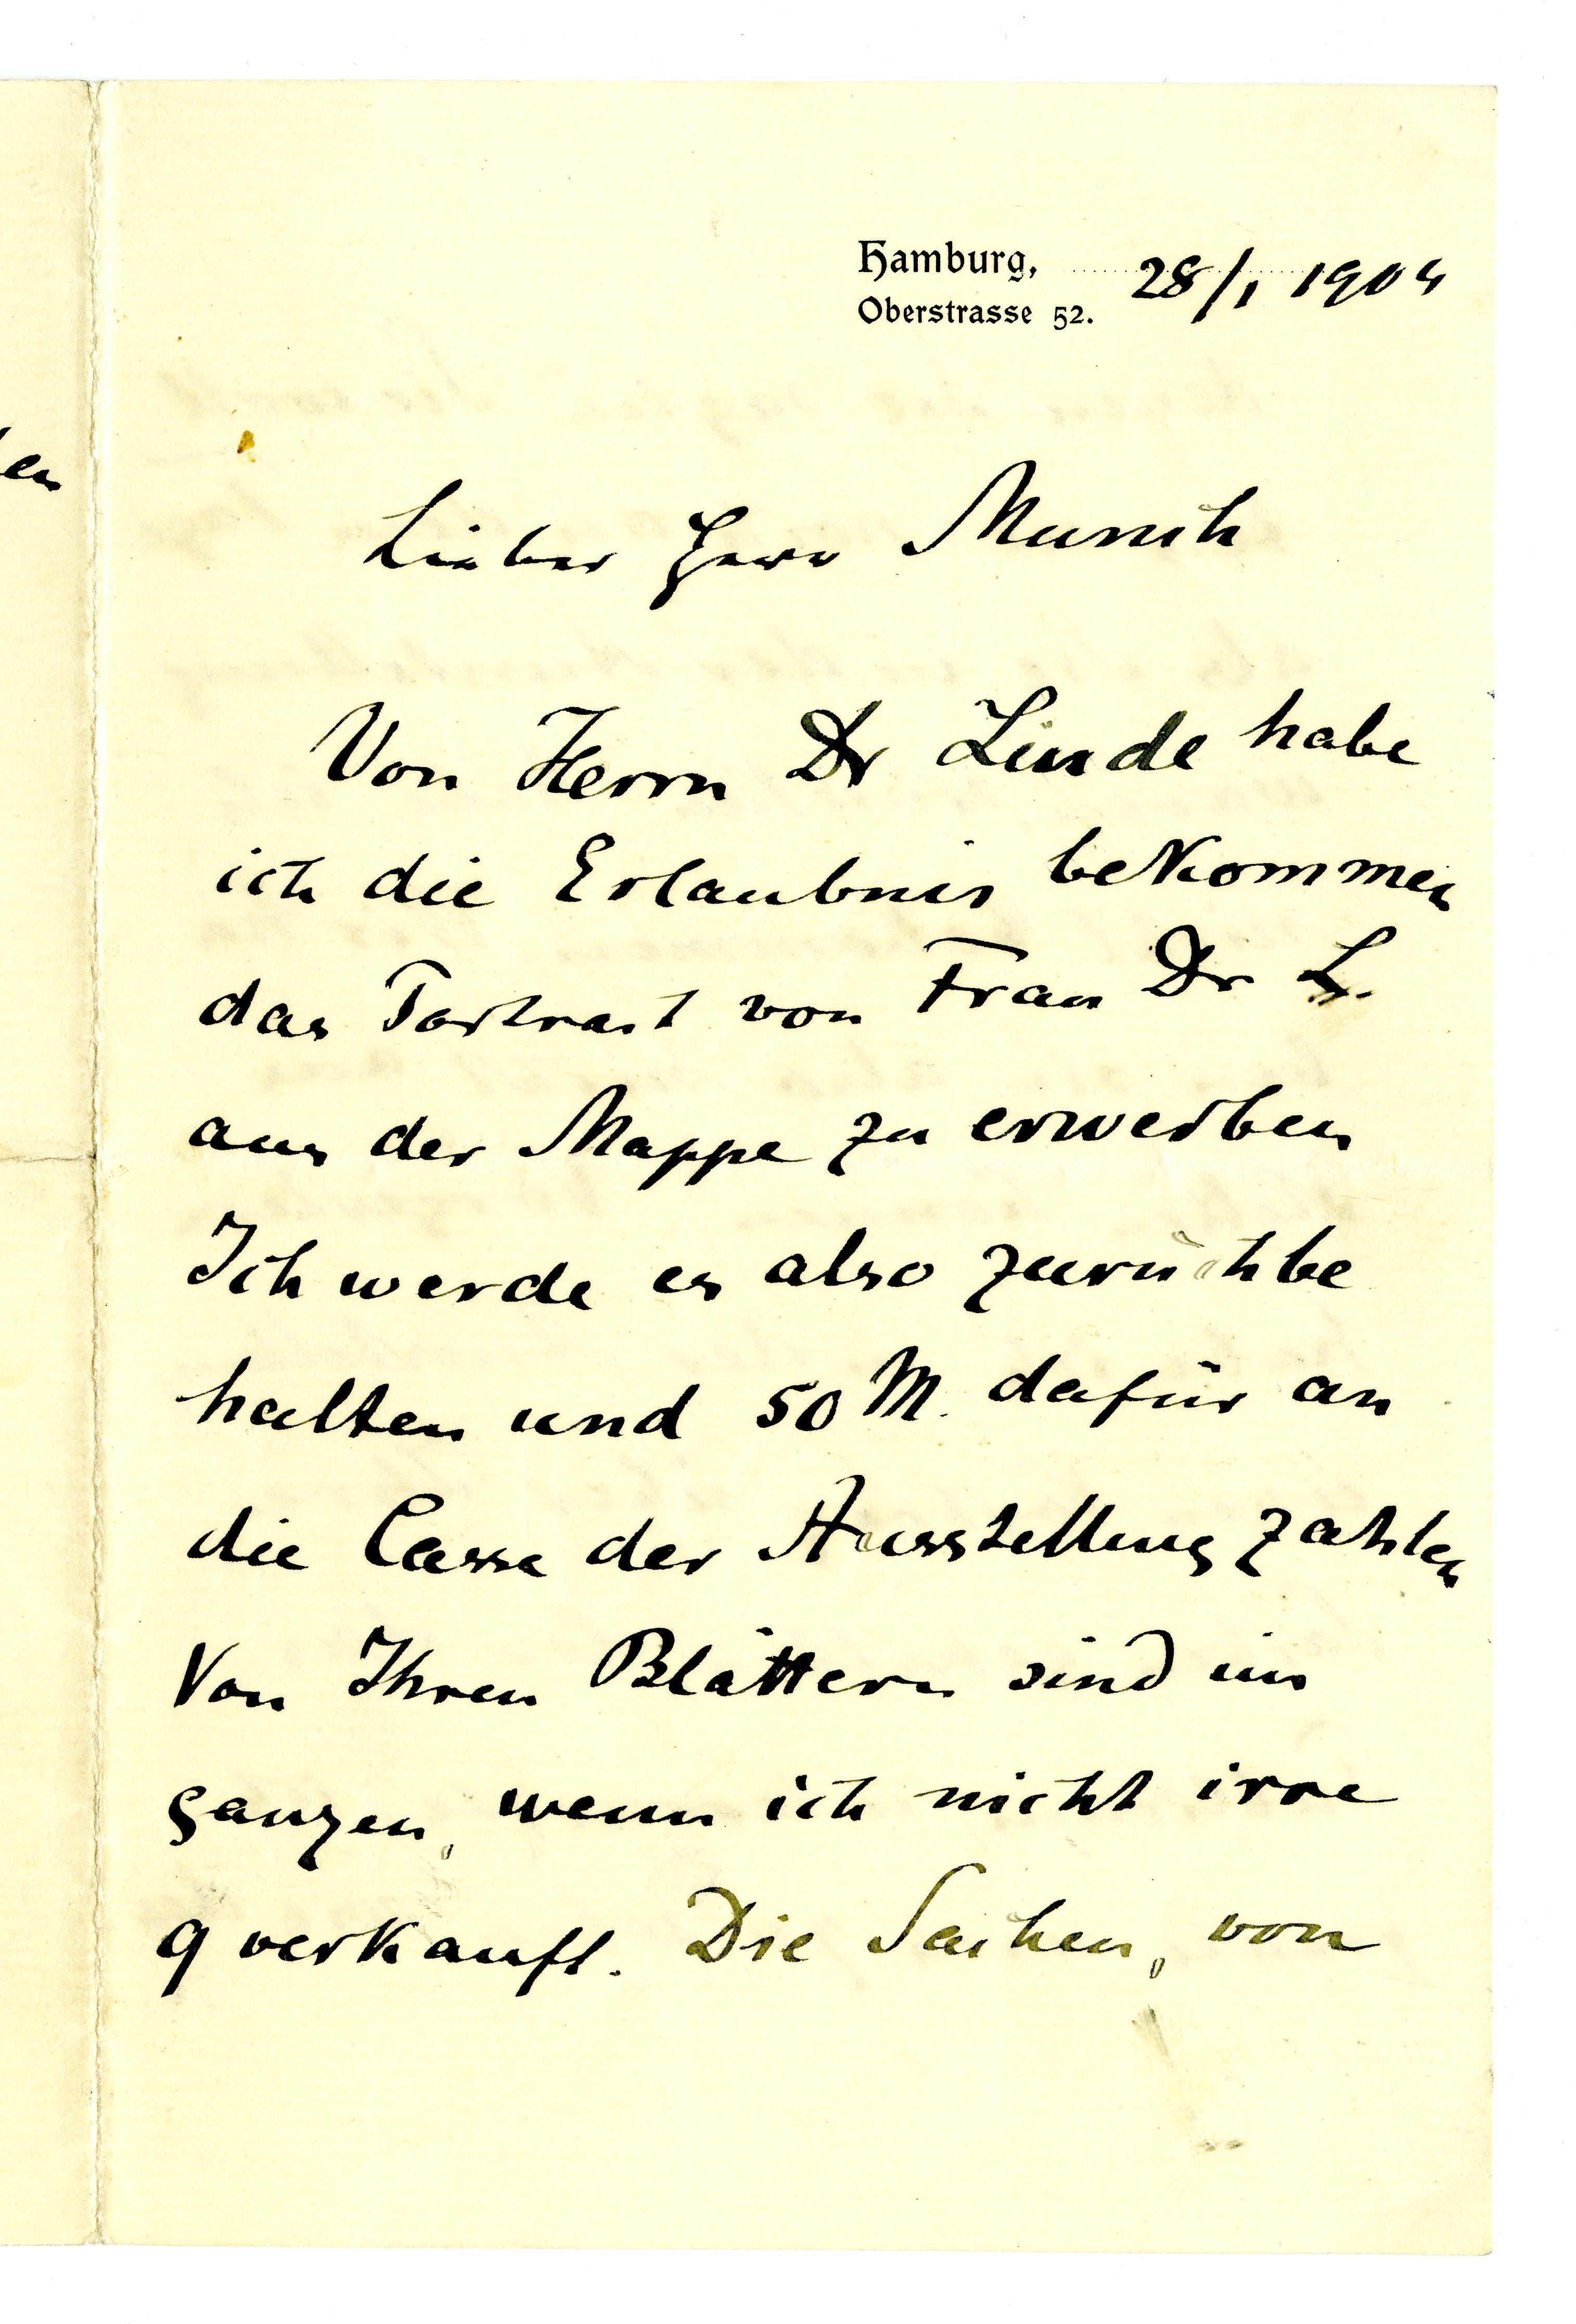 Hamburg, 28/1 1904
Oberstrasse 52.
Lieber Herr Munch
Von Herrn Dr Linde habe
ich die Erlaubnis bekommen
das Portrait von Frau Dr L.
aus der Mappe zu erwerben
Ich werde es also zurückbe
halten und 50 M. dafür an
die Casse der Ausstellung zahlen
Von Ihren Blättern sind im
ganzen, wenn ich nicht irre
9 verkauft. Die Sachen, von